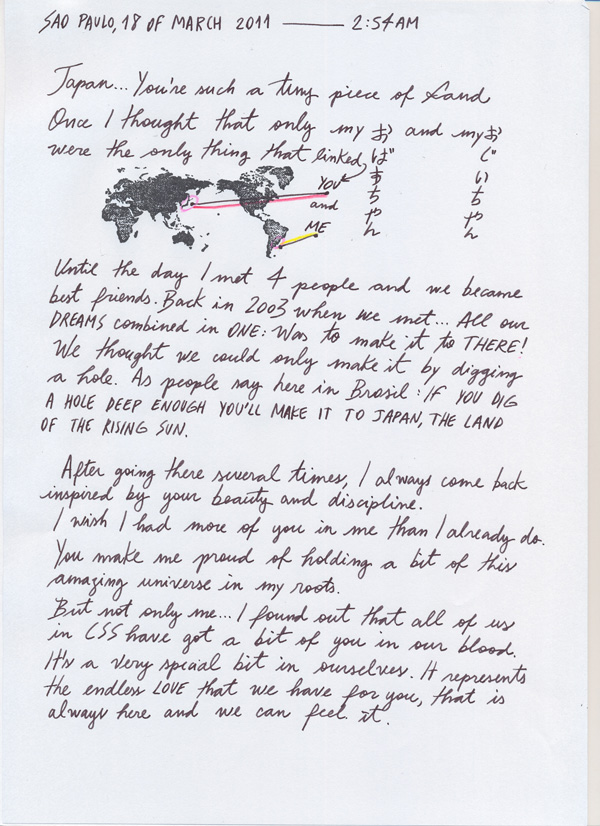 SAO PAULO, 18 OF MARCH 2011 — 2:54AM
Japan... You're such a tiny piece of land
Once I thought that only my おばあちゃん and my おじいちゃん
were the only thing that linked
YOU
and
ME
Until the day I met 4 people and we became
best friends. Back in 2003 when we met... All our
DREAMS combined in ONE: Was to make it to THERE!
We thought we could only make it by digging
a hole. As people say here in Brasil: IF YOU DIG
A HOLE DEEP ENOUGH YOU'LL MAKE IT TO JAPAN, THE LAND
OF THE RISING SUN.
After going there several times, I always come back
inspired by your beauty and discipline.
I wish I had more of you in me than I already do.
You make me proud of holding a bit of this
amazing universe in my roots.
But not only me... I found out that all of us
in CSS have got a bit of you in our blood.
It's a very special bit in ourselves. It represents
the endless LOVE that we have for you, that is
always here and we can feel it.